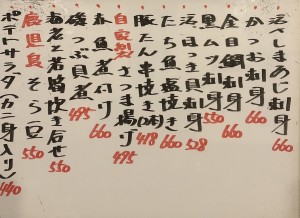 活〆しまあじ刺身 660
かつお刺身 660
金目鯛刺身 660
黒ムツ刺身 550
活つぶ貝刺身 528
たら魚塩焼き 660
豚たん串焼き(2本) 418
自家製さつま揚げ 495
春魚煮付け 660
磯つぶ煮 495
海老と若筍炊き合せ 550
鹿児島そら豆 550
ポテトサラダ(カニ身入り) 440